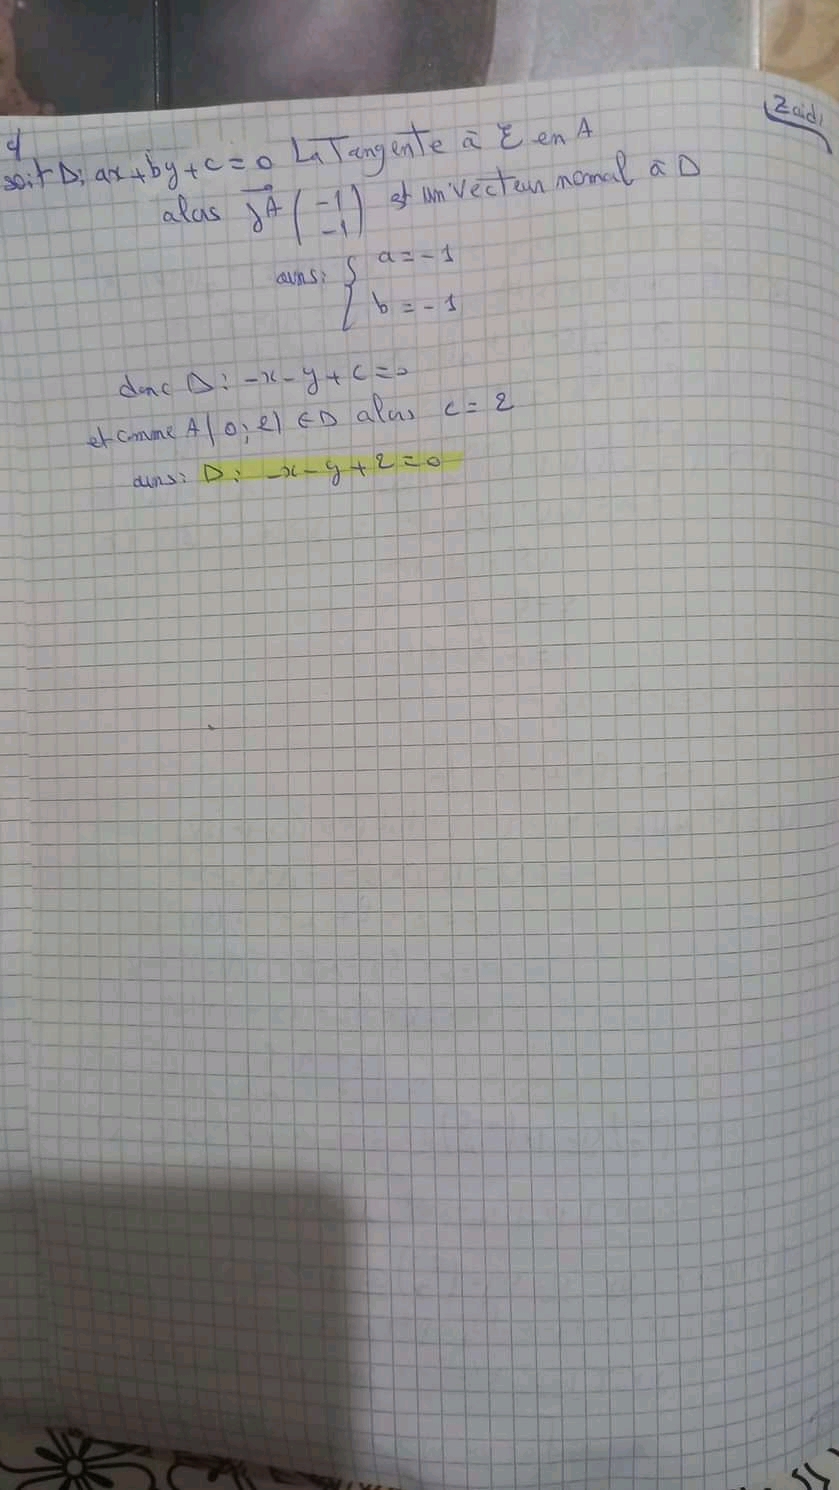 Zaidi
4
soit D: ax+by+c=0 La Tangente à ξ en A
alors JA (-1 -1) est un vecteur normal à D
ainsi { a=-1
b=-1
donc D: -x-y+c=0
et comme A(0;2) ∈ D alors c=2
ainsi D: -x-y+2=0